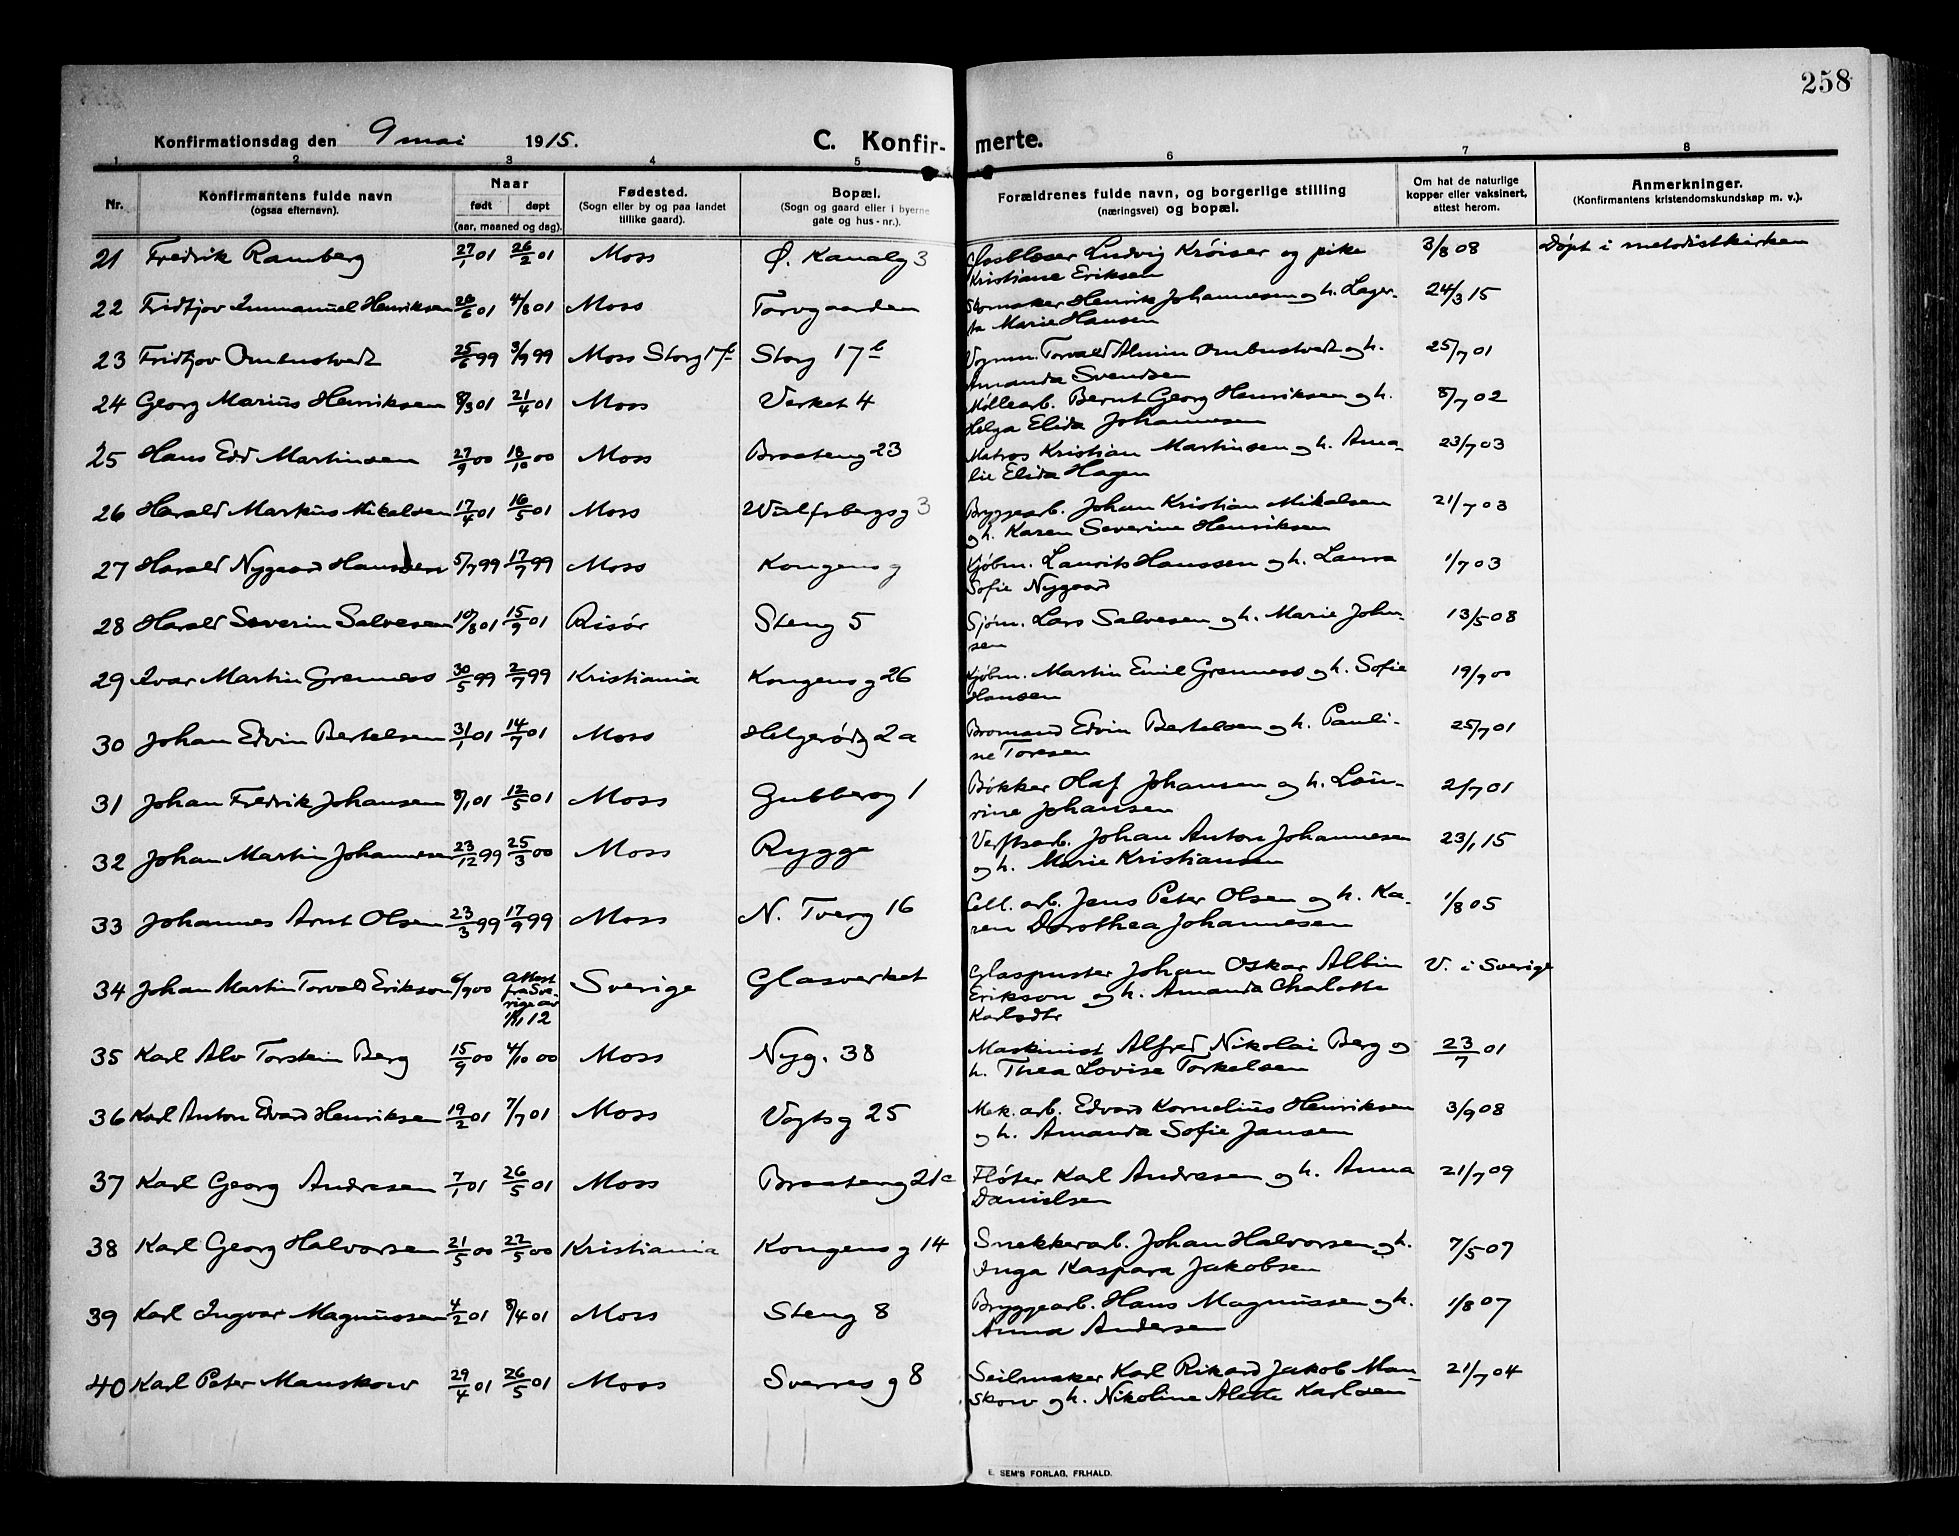 258
Konfirmationsdag den 9 mai 1915. C. Konfir- merte.
1 2 3 4 5 6 7 8
Nr. Konfirmantens fulde navn (ogsaa efternavn). Naar født døpt (aar, maaned og dag). Fødested. (Sogn eller by og paa landet tillike gaard). Bopæl. (Sogn og gaard eller i byerne gate og hus-nr.). Forældrenes fulde navn, og borgerlige stilling (næringsvei) og bopæl. Om hat de naturlige kopper eller vaksinert, attest herom. Anmerkninger. (Konfirmantens kristendomskundskap m. v.).
21 Fredrik Ramberg 27/1 01 26/2 01 Moss Ø. Kanalg 3 Glasblæser Ludvig Krøiser og pike 3/8 08 Døpt i metodistkirken
Kristiane Eriksen
22 Fridtjov Immanuel Henriksen 26/6 01 4/8 01 Moss Torvgaarden Skomaker Henrik Johannesen og h. Lager- 24/3 15
ta Marie Hansen
23 Fridtjov Ombustvedt 25/6 99 3/9 99 Moss Storg 17b Storg 17b Vognm. Torvald Almin Ombustvedt og h. 25/7 01
Amanda Svendsen
24 Georg Marius Henriksen 8/3 01 21/4 01 Moss Verket 4 Møllearb. Bernt Georg Henriksen og h. 8/7 02
Helga Elida Johannesen
25 Hans Edv Martinsen 27/9 00 18/10 00 Moss Braateng 23 Matros Kristian Martinsen og h. Ama- 23/7 03
lie Elida Hagen
26 Harald Markus Mikalsen 17/4 01 16/5 01 Moss Wulfsbergsg 3 Bryggearb. Johan Kristian Mikalsen 21/7 03
og h. Karen Severine Henriksen
27 Harald Nygaard Hanssen 5/7 99 17/7 99 Moss Kongens g Kjøbm. Laurits Hanssen og h. Laura 1/7 03
Sofie Nygaard
28 Harald Severin Salvesen 10/8 01 15/9 01 Risør Steng 5 Sjøm. Lars Salvesen og h. Marie John- 13/5 08
sen
29 Ivar Martin Grenness 30/5 99 2/7 99 Kristiania Kongens g 26 Kjøbm. Martin Emil Grenness og h. Sofie 19/9 00
Hansen
30 Johan Edvin Bertelsen 31/1 01 14/7 01 Moss Helgerødg 2a Bromand Edvin Bertelsen og h. Pauli- 25/7 01
ne Toresen
31 Johan Fredrik Johansen 8/1 01 12/5 01 Moss Gubberog 1 Bøkker Olaf Johansen og h. Lau- 2/7 01
rine Johansen
32 Johan Martin Johannesen 23/12 99 25/3 00 Moss Rygge Verftsarb. Johan Anton Johannesen 23/1 15
og h. Marie Kristiansen
33 Johannes Arnt Olsen 23/3 99 17/9 99 Moss N. Tverg 16 Cell. arb. Jens Peter Olsen og h. Ka- 1/8 05
ren Dorothea Johannesen
34 Johan Martin Torvald Erikson 6/9 00 Attest fra Sve- rige av 12 Sverige Glasverket Glaspuster Johan Oskar Albin V. i Sverige
Erikson og h. Amanda Charlotte
Karlsdtr
35 Karl Alv Torstein Berg 15/9 00 4/10 00 Moss Nyg. 38 Maskinist Alfred Nikolai Berg og 23/7 01
h. Thea Lovise Torkelsen
36 Karl Anton Edvard Henriksen 19/2 01 7/7 01 Moss Vogtsg 25 Mek. arb. Edvard Kornelius Henriksen 3/9 08
og h. Amanda Sofie Jansen
37 Karl Georg Andresen 7/1 01 26/5 01 Moss Braateng 21c Fløter Karl Andresen og h. Anna 21/7 09
Danielsen
38 Karl Georg Halvorsen 21/5 00 22/5 00 Kristiania Kongens g 14 Snekkerarb. Johan Halvorsen og h. 7/5 07
Inga Kaspara Jakobsen
39 Karl Ingvar Magnussen 4/2 01 8/4 01 Moss Steng 8 Bryggearb. Hans Magnussen og h. 1/8 07
Anna Andersen
40 Karl Peter Manskow 29/4 01 26/5 01 Moss Sverres g 8 Seilmaker Karl Rikard Jakob Man- 21/7 04
skow og h. Nikoline Alette Karlsen
E. SEM'S FORLAG, FR.HALD.